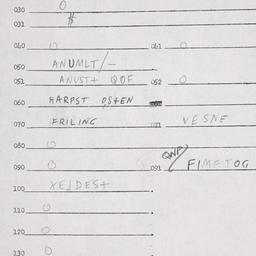 030 0
031 $
040 0 041 0
050 ANUMLT/-
051 ANUST+ QOF 052 0
060 HARPST OSTEN
070 FRILING 071 VESNE
080 0
QNP/
090 0 091 FIMETOG
100 XELDEST .
110 0 .
120 0 .
130 0